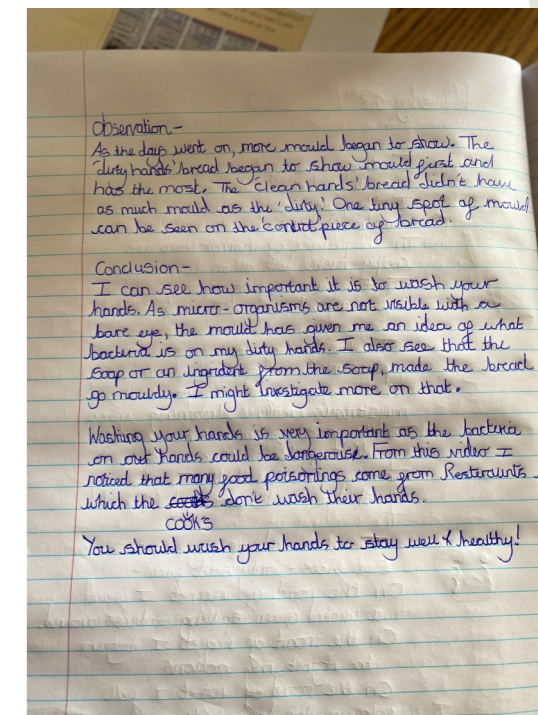 Observation-
As the days went on, more mould began to show. The
'dirty hands' bread began to show mould first and
has the most. The 'clean hands' bread didn't have
as much mould as the 'dirty'. One tiny spot of mould
can be seen on the 'control' piece of bread.
Conclusion-
I can see how important it is to wash your
hands. As micro-organisms are not visible with a
bare eye, the mould has given me an idea of what
bacteria is on my dirty hands. I also see that the
soap or an ingrident from the soap, made the bread
go mouldy. I might investigate more on that.
Washing your hands is very important as the bacteria
on our hands could be dangerouse. From this video I
noticed that many food poisonings come from Restiraunts
which the don't wash their hands.
cooks
You should wash your hands to stay well & healthy!